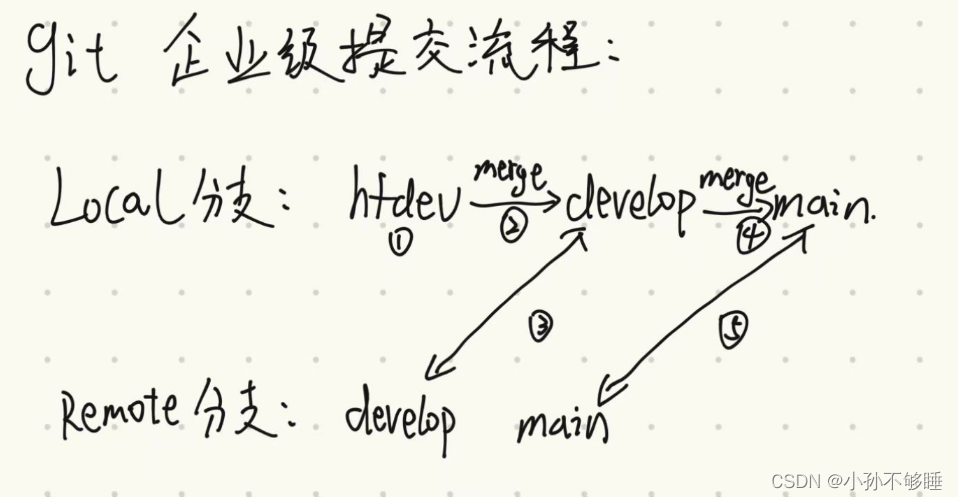 git 企业级提交流程：
merge merge
Local分支： htdev develop main.
① ② ④
③ ⑤
Remote分支： develop main
CSDN @小孙不够睡